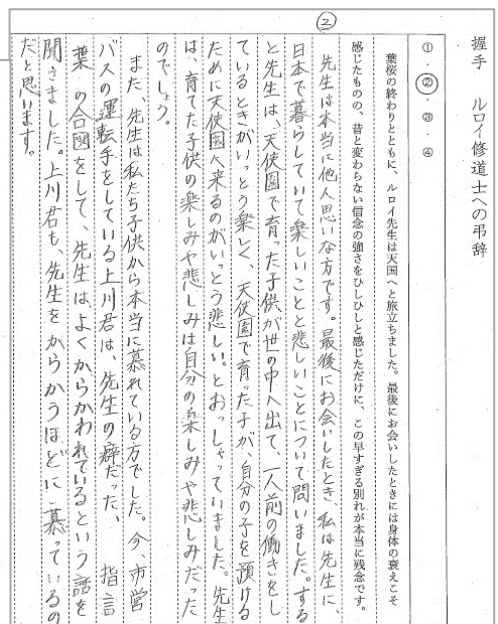 ②
握手　ルロイ修道士への弔辞
①・②・③・④
葉桜の終わりとともに、ルロイ先生は天国へと旅立ちました。最後にお会いしたときには身体の衰えこそ
感じたものの、昔と変わらない信念の強さをひしひしと感じただけに、この早すぎる別れが本当に残念です。
先生は本当に他人思いな方です。最後にお会いしたとき、私は先生に、
日本で暮らしていて楽しいことと悲しいことについて問いました。する
と先生は、天使園で育った子供が世の中へ出て、一人前の働きをし
ているときがいっとう楽しく、天使園で育った子が、自分の子を預ける
ために天使園へ来るのがいっとう悲しい。とおっしゃっていました。先生
は、育てた子供の楽しみや悲しみは自分の楽しみや悲しみだった
のでしょう。
また、先生は私たち子供から本当に慕れている方でした。今、市営
バスの運転手をしている上川君は、先生の癖だった、指言
葉の合図をして、先生は、よくからかわれているという話を
聞きました。上川君も、先生をからかうほどに慕っているの
だと思います。